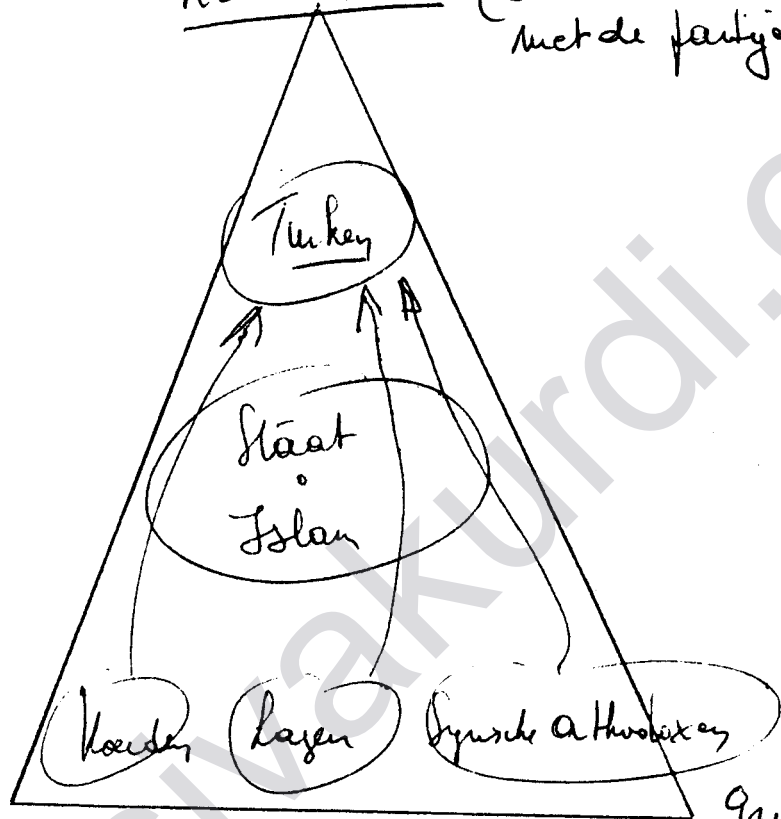 met de partij
Turken
Staat
Islam
Koerden Lazen Syrische Orthodoxen